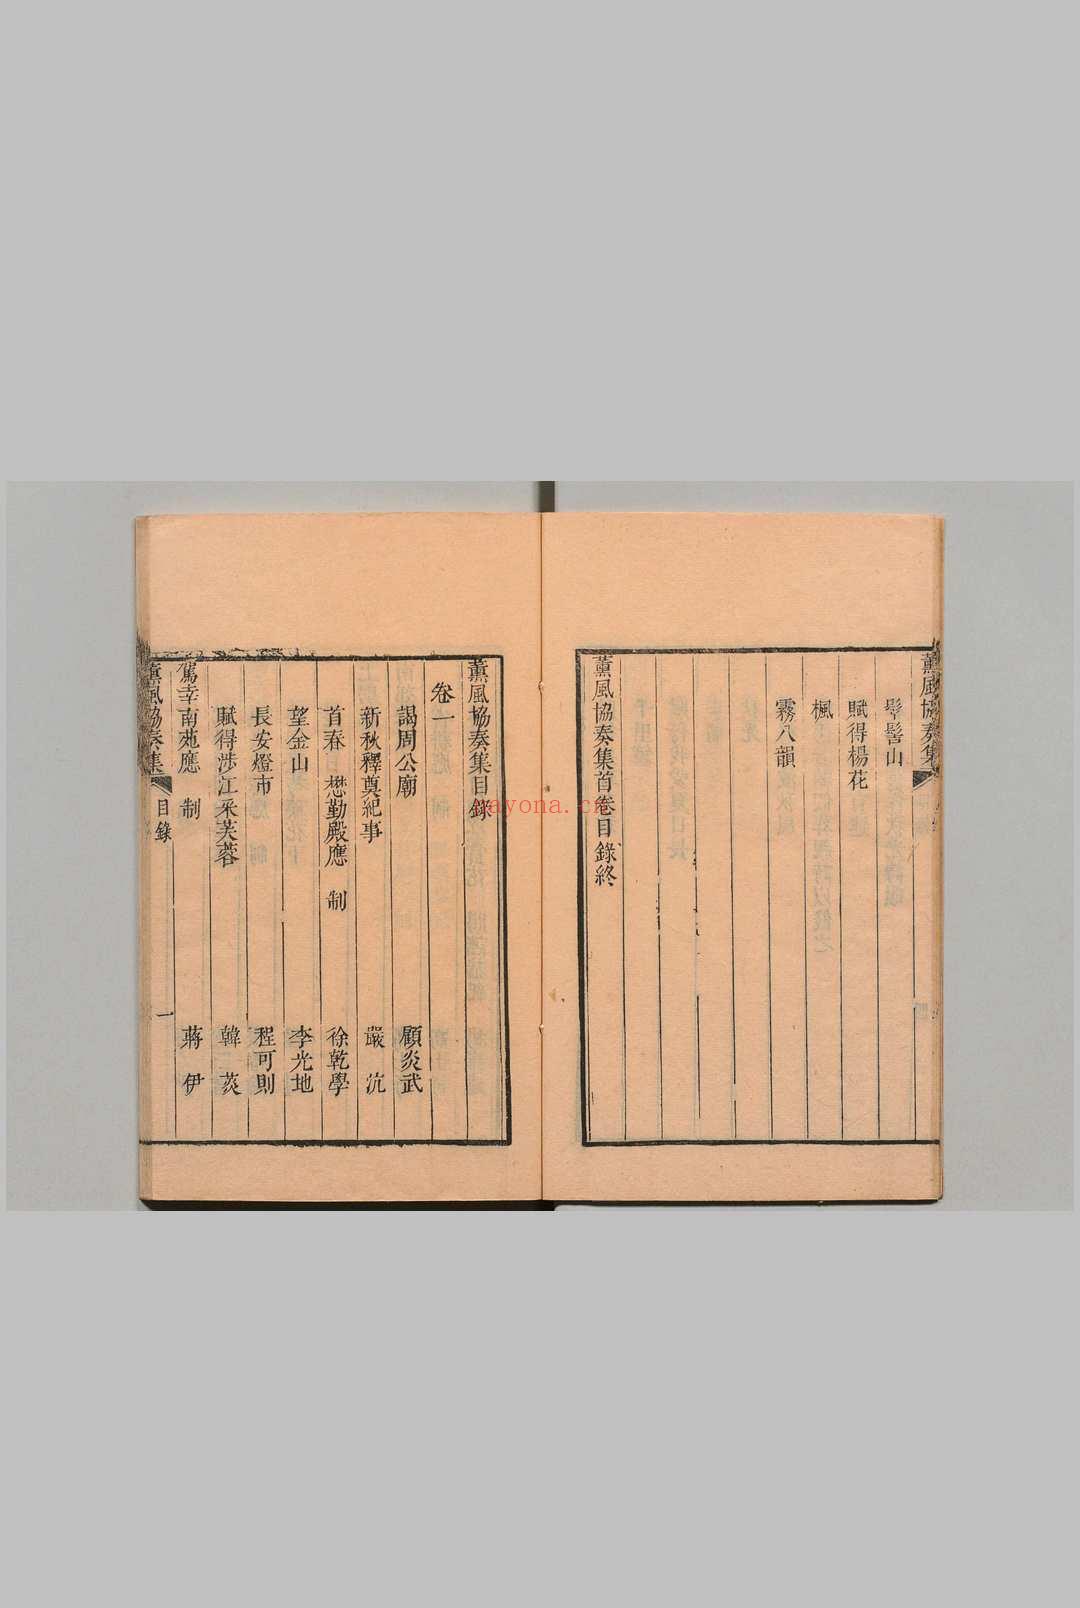 薰風協奏集
髻山
賦得楊花
楓
霧八韻
薰風協奏集首卷目錄終
薰風協奏集目錄
卷一
謁周公廟 顧炎武
新秋釋奠紀事 嚴沆
首春懋勤殿應 制 徐乾學
望金山 李光地
長安燈市 程可則
賦得涉江采芙蓉 韓菼
駕幸南苑應 制 蔣伊
薰風協奏集 目錄 一
yayona.cn